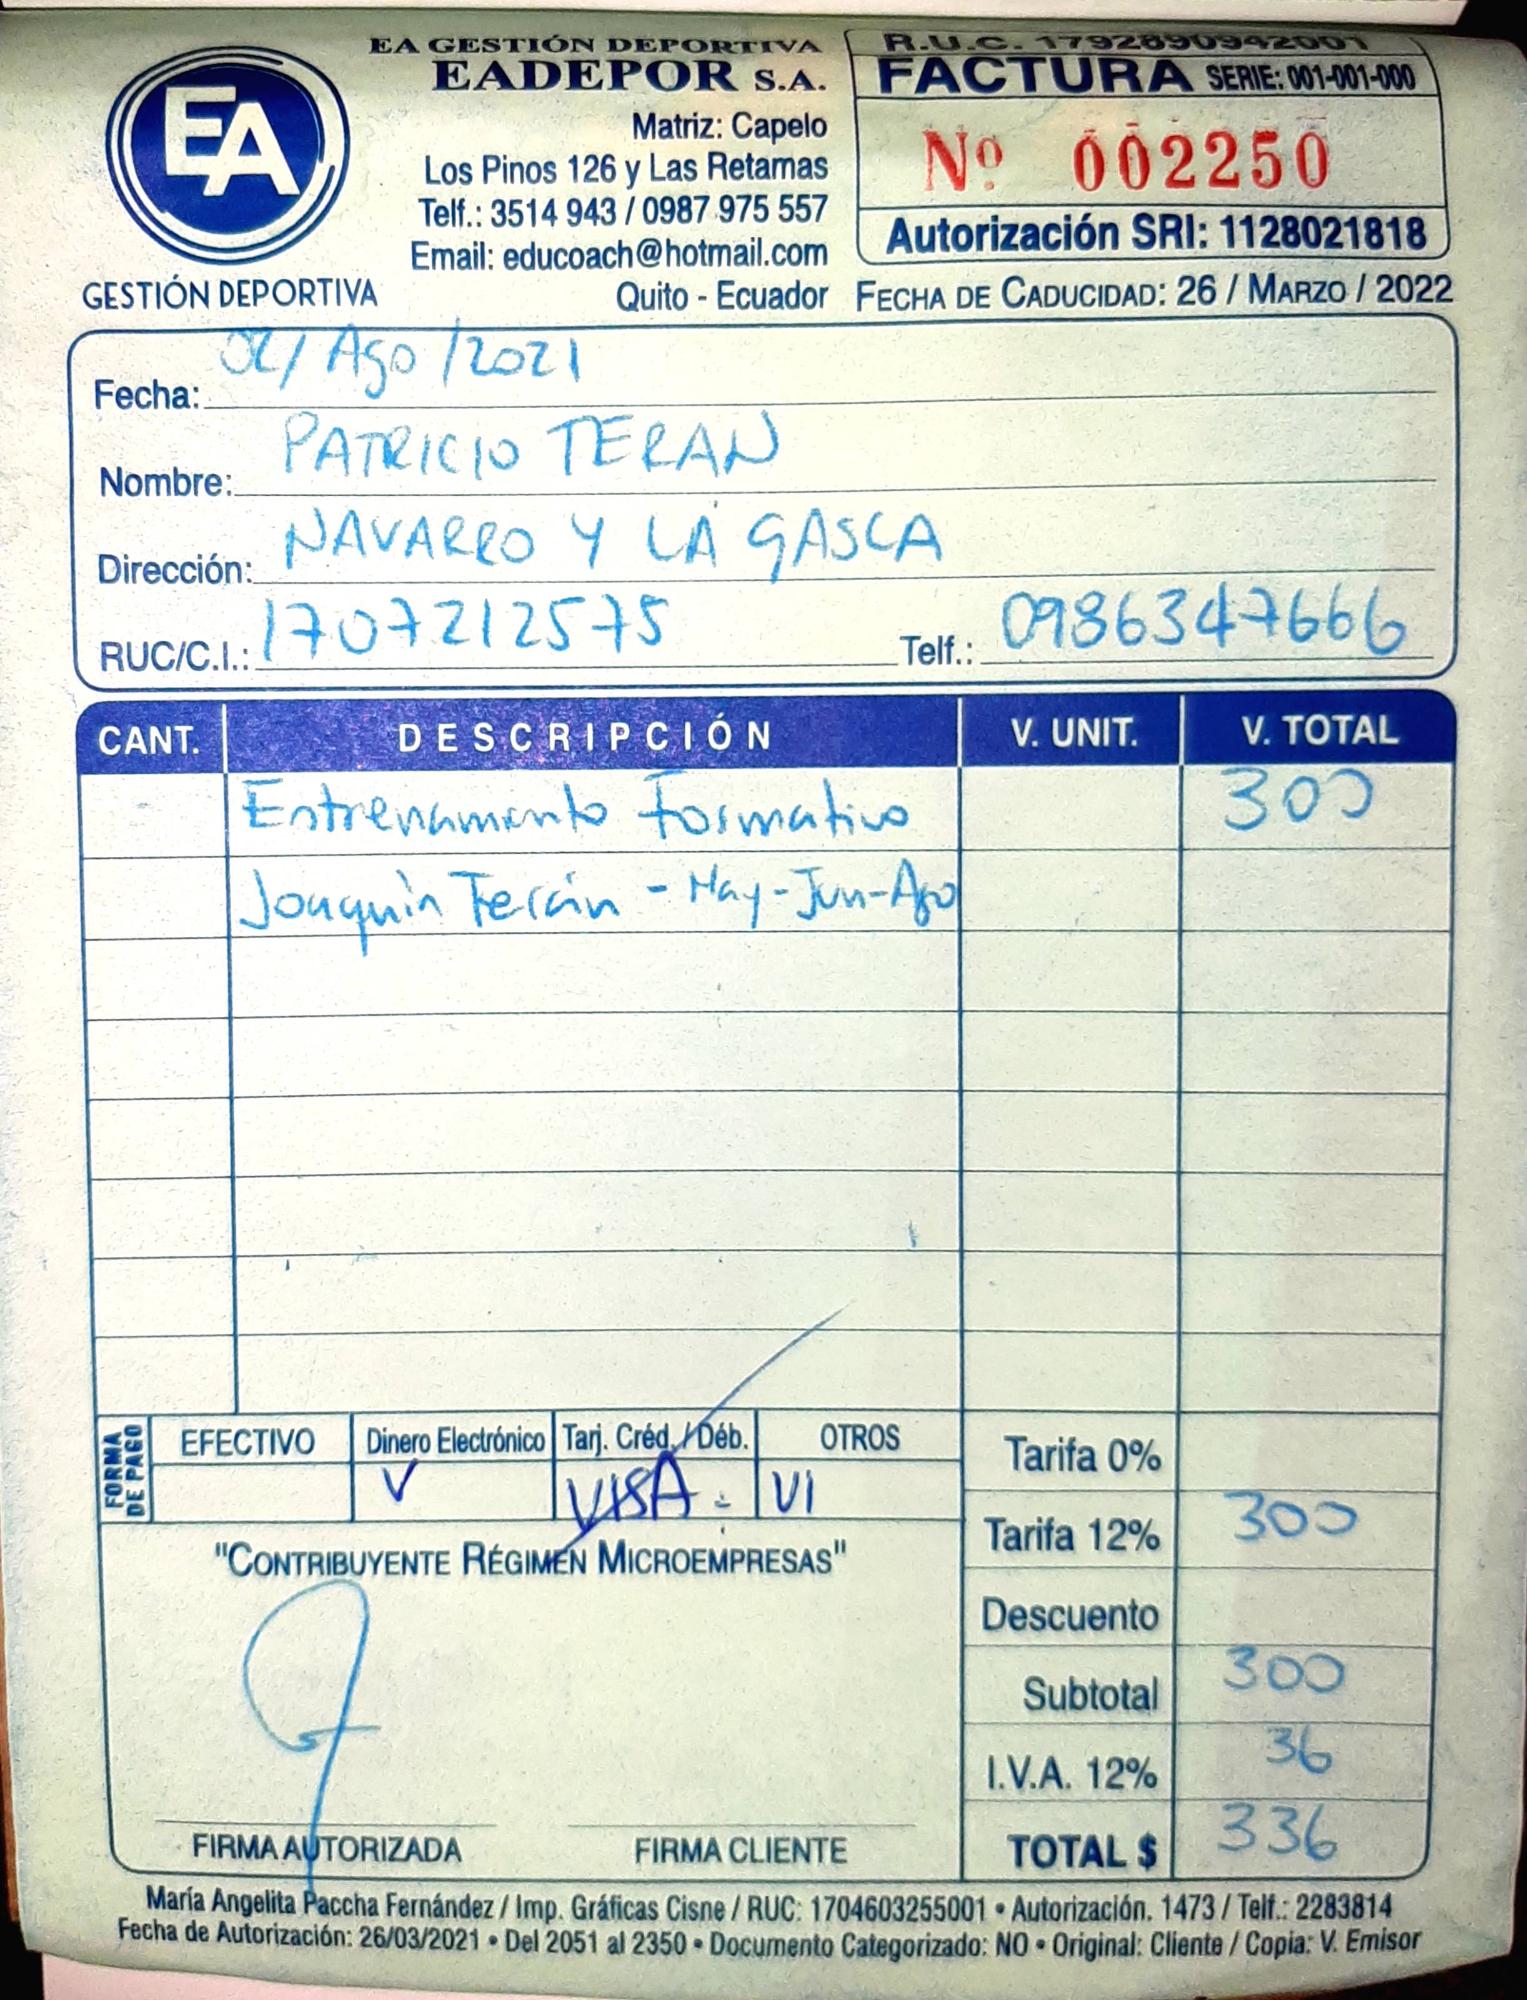 EA
GESTIÓN DEPORTIVA
EA GESTIÓN DEPORTIVA
EADEPOR S.A.
Matriz: Capelo
Los Pinos 126 y Las Retamas
Telf.: 3514 943 / 0987 975 557
Email: educoach@hotmail.com
Quito - Ecuador
R.U.C. 1792890942001
FACTURA SERIE: 001-001-000
Nº 002250
Autorización SRI: 1128021818
FECHA DE CADUCIDAD: 26 / MARZO / 2022
Fecha: 02/ Ago /2021
Nombre: PATRICIO TERAN
Dirección: NAVARRO Y LA GASCA
RUC/C.I.: 1707212575 Telf.: 0986347666
CANT. DESCRIPCIÓN V. UNIT. V. TOTAL
Entrenamiento Formativo 300
Joaquín Terán - May-Jun-Ago
FORMA DE PAGO
EFECTIVO Dinero Electrónico Tarj. Créd. / Déb. OTROS
V VISA. VI
"CONTRIBUYENTE RÉGIMEN MICROEMPRESAS"
FIRMA AUTORIZADA FIRMA CLIENTE
Tarifa 0%
Tarifa 12% 300
Descuento
Subtotal 300
I.V.A. 12% 36
TOTAL $ 336
María Angelita Paccha Fernández / Imp. Gráficas Cisne / RUC: 1704603255001 • Autorización. 1473 / Telf.: 2283814
Fecha de Autorización: 26/03/2021 • Del 2051 al 2350 • Documento Categorizado: NO • Original: Cliente / Copia: V. Emisor